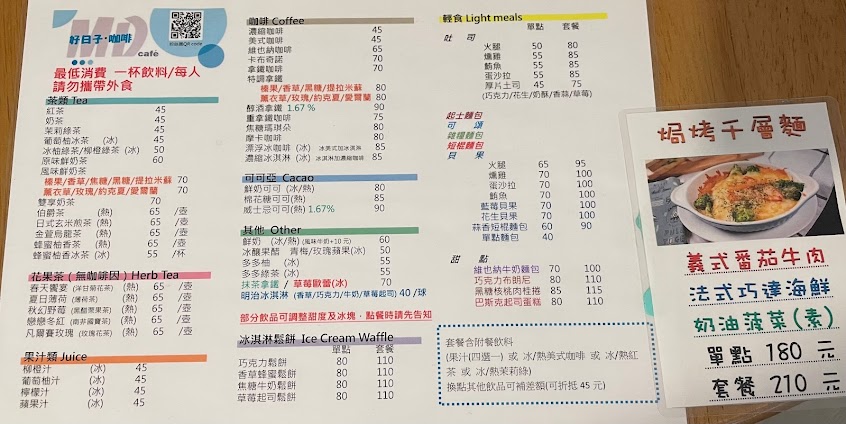 好日子‧咖啡
MD
café
最低消費 一杯飲料/每人
請勿攜帶外食
茶類 Tea
紅茶 45
奶茶 45
茉莉綠茶 45
葡萄柚冰茶 (冰) 50
冰柚綠茶/柳橙綠茶 (冰) 50
原味鮮奶茶 60
風味鮮奶茶
榛果/香草/焦糖/黑糖/提拉米蘇 70
薰衣草/玫瑰/約克夏/愛爾蘭 70
雙享奶茶 70
伯爵茶 (熱) 65 /壺
日式玄米煎茶 (熱) 65 /壺
金萱烏龍茶 (熱) 65 /壺
蜂蜜柚香茶 (熱) 65 /壺
蜂蜜柚香冰茶 (冰) 55 /杯
花果茶 (無咖啡因) Herb Tea
春天饗宴 (洋甘菊花茶) (熱) 65 /壺
夏日薄荷 (薄荷茶) (熱) 65 /壺
秋幻野莓 (黑醋栗果茶) (熱) 65 /壺
戀戀冬紅 (南非國寶茶) (熱) 65 /壺
凡爾賽玫瑰 (玫瑰花茶) (熱) 65 /壺
果汁類 Juice
柳橙汁 (冰) 45
葡萄柚汁 (冰) 45
檸檬汁 (冰) 45
蘋果汁 (冰) 45
咖啡 Coffee
濃縮咖啡 45
美式咖啡 45
維也納咖啡 65
卡布奇諾 70
拿鐵咖啡 70
特調拿鐵
榛果/香草/黑糖/提拉米蘇 80
薰衣草/玫瑰/約克夏/愛爾蘭 80
醇酒拿鐵 1.67 % 90
重拿鐵咖啡 75
焦糖瑪琪朵 80
摩卡咖啡 80
漂浮冰咖啡 (冰) 冰美式加冰淇淋 85
濃縮冰淇淋 (冰) 冰淇淋加濃縮咖啡 85
可可亞 Cacao
鮮奶可可 (冰/熱) 80
棉花糖可可 (熱) 85
威士忌可可(熱) 1.67% 90
其他 Other
鮮奶 (冰/熱) (風味牛奶+10 元) 60
冰釀果醋 青梅/玫瑰蘋果(冰) 50
多多柚 (冰) 55
多多綠茶 (冰) 55
抹茶拿鐵 / 草莓歐蕾(冰) 70
明治冰淇淋 (香草/巧克力/牛奶/草莓起司) 40 /球
部分飲品可調整甜度及冰塊，點餐時請先告知
冰淇淋鬆餅 Ice Cream Waffle
單點 套餐
巧克力鬆餅 80 110
香草蜂蜜鬆餅 80 110
焦糖牛奶鬆餅 80 110
草莓起司鬆餅 80 110
輕食 Light meals
單點 套餐
吐 司
火腿 50 80
燻雞 55 85
鮪魚 55 85
蛋沙拉 55 85
厚片土司 45 75
(巧克力/花生/奶酥/香蒜/草莓)
起士麵包
可 頌
雜糧麵包
短棍麵包
貝 果
火腿 65 95
燻雞 70 100
蛋沙拉 70 100
鮪魚 70 100
藍莓貝果 70 100
花生貝果 70 100
蒜香短棍麵包 60 90
單點麵包 40
甜 點
維也納牛奶麵包 70 100
巧克力布朗尼 80 110
黑糖核桃肉桂捲 85 115
巴斯克起司蛋糕 80 110
套餐含附餐飲料
(果汁(四選一) 或 冰/熱美式咖啡 或 冰/熱紅
茶 或 冰/熱茉莉綠)
換點其他飲品可補差額(可折抵 45 元)
焗烤千層麵
義式番茄牛肉
法式巧達海鮮
奶油菠菜(素)
單點 180 元
套餐 210 元